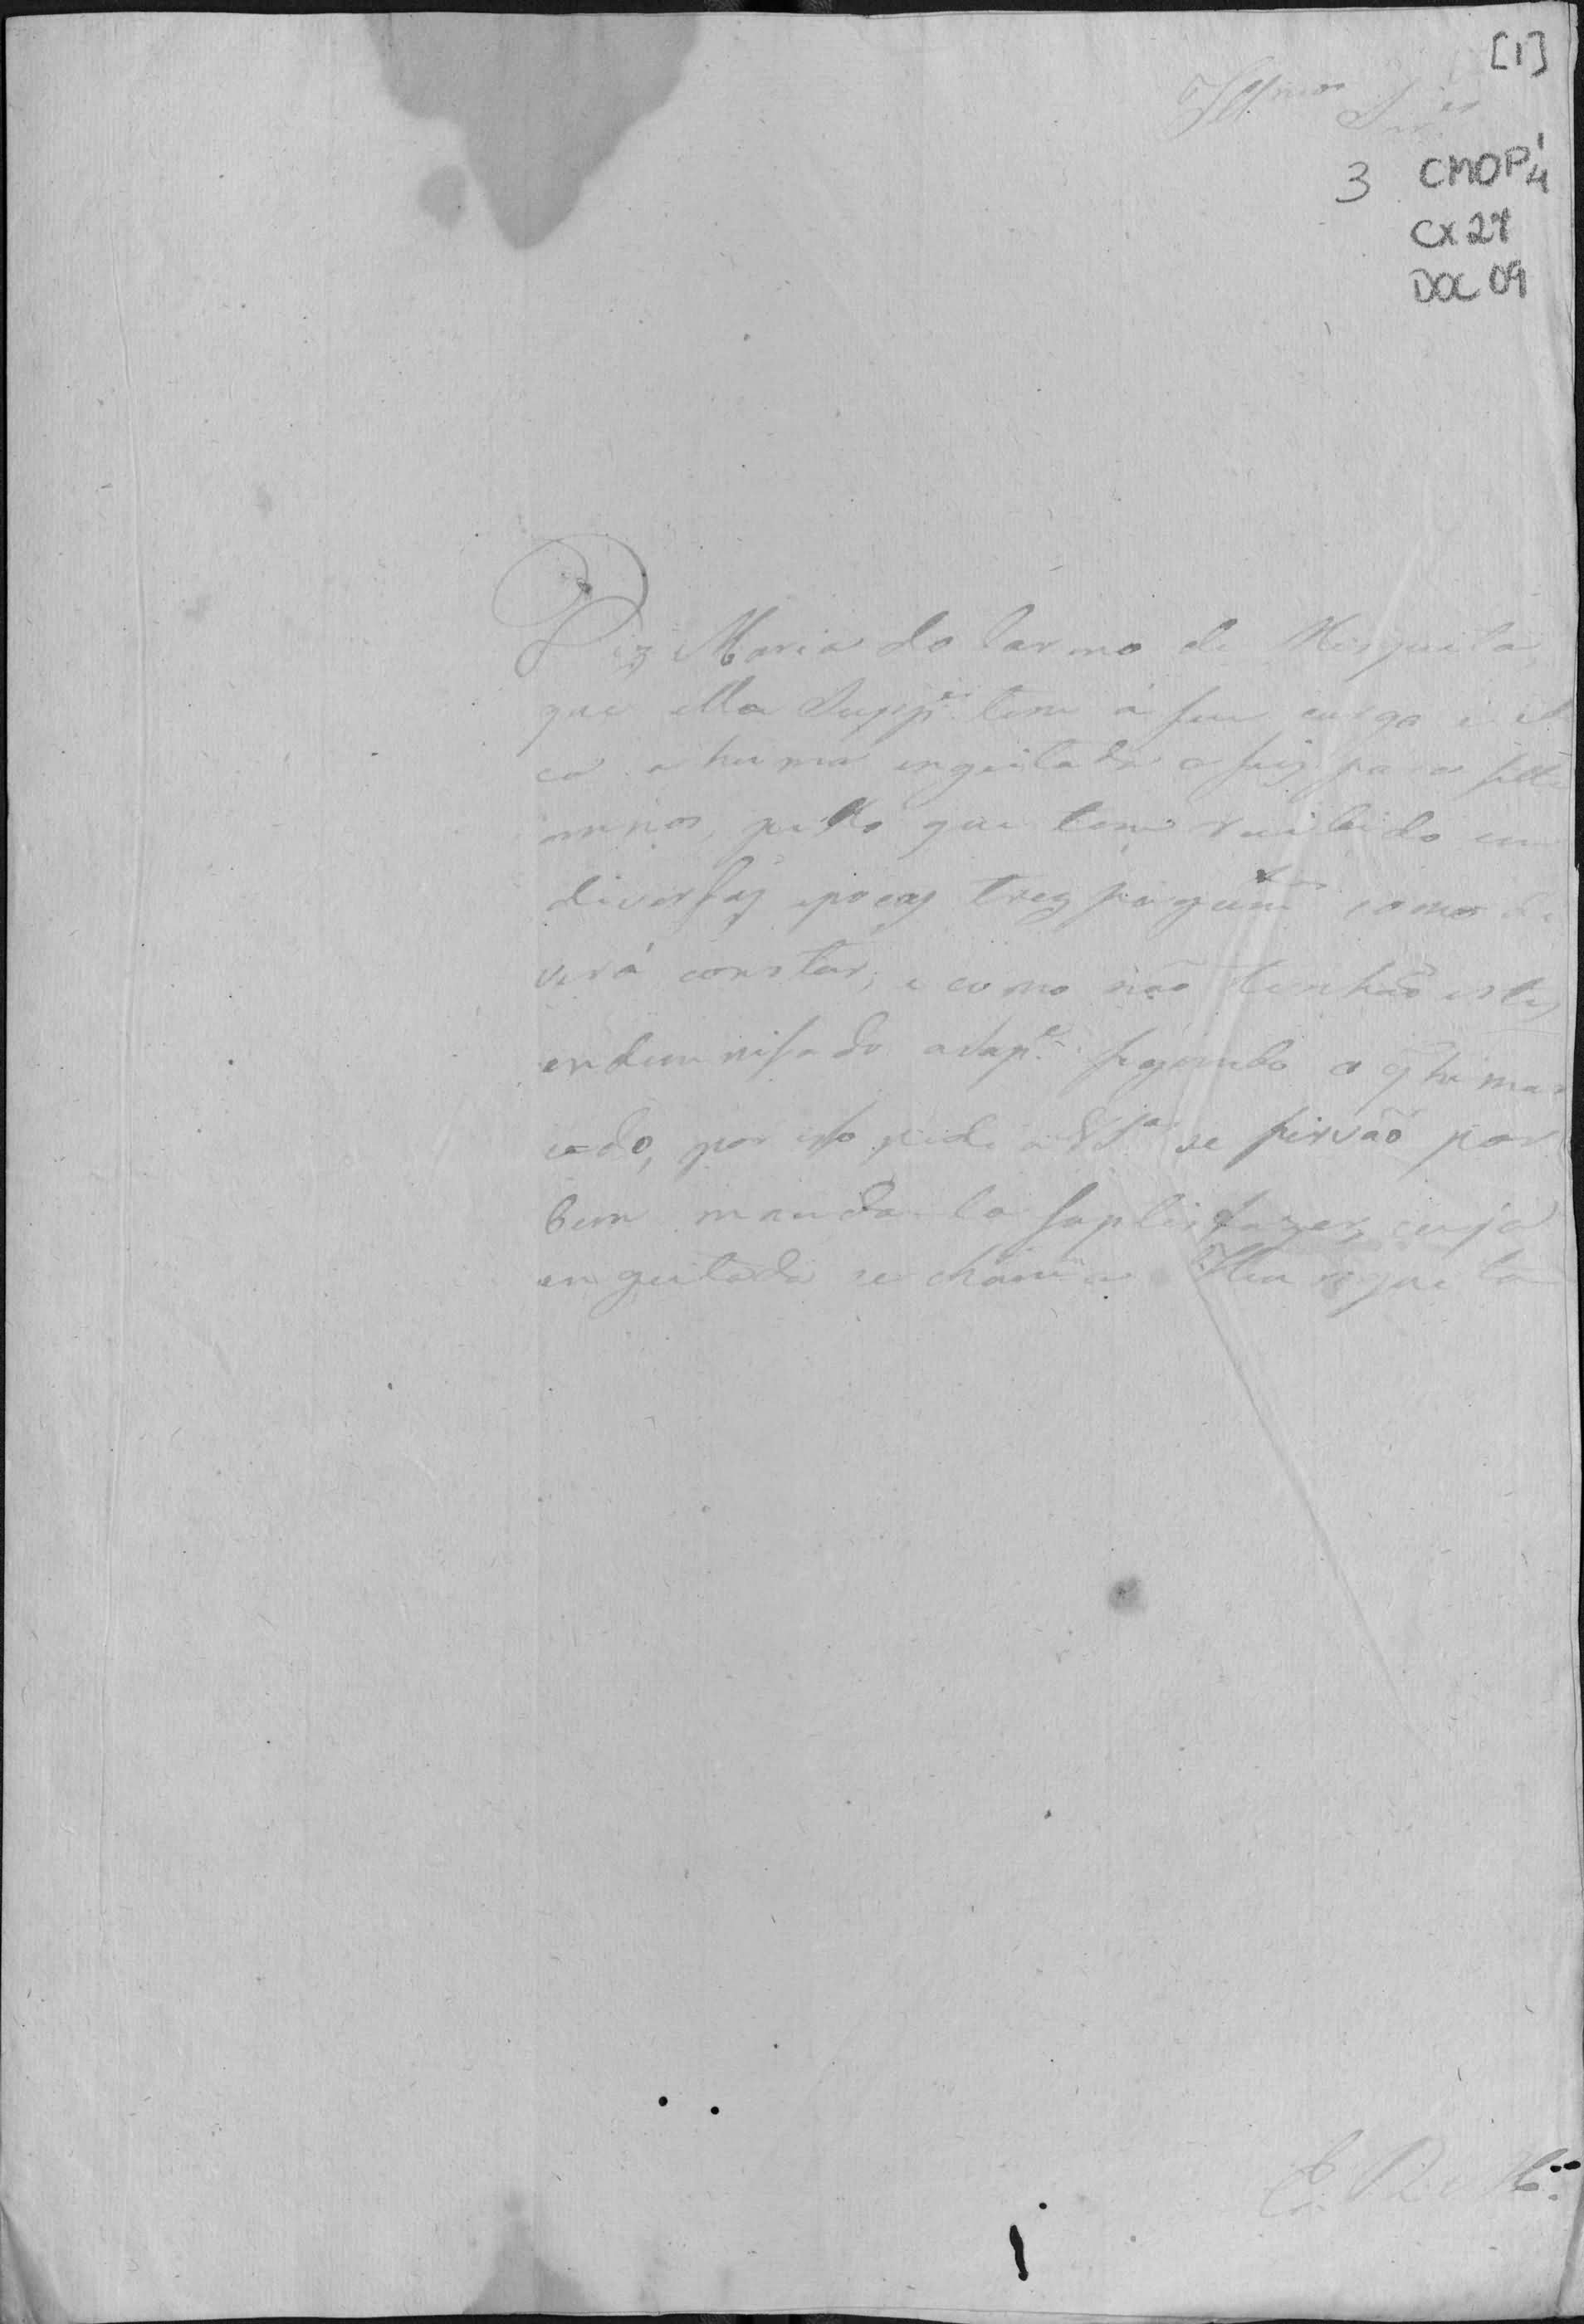 [1]
Illmos Snres
3 CMOP 1/4
CX 27
DOC 09
Diz Maria do Carmo de Misquita,
que ella Suppe. tem á seu cargo e
a huma engeitada a seis para sette
annos, pello que tem recibido em
diversas epocas trez pagamtos como de
verá constar, e como não tenhão estes
endemnisado a Supe. segundo o q he mar
cado, por isso pede a VSas se sirvão por
bem mandala saptisfazer, cuja
engeitada se chama
E. R. Mce